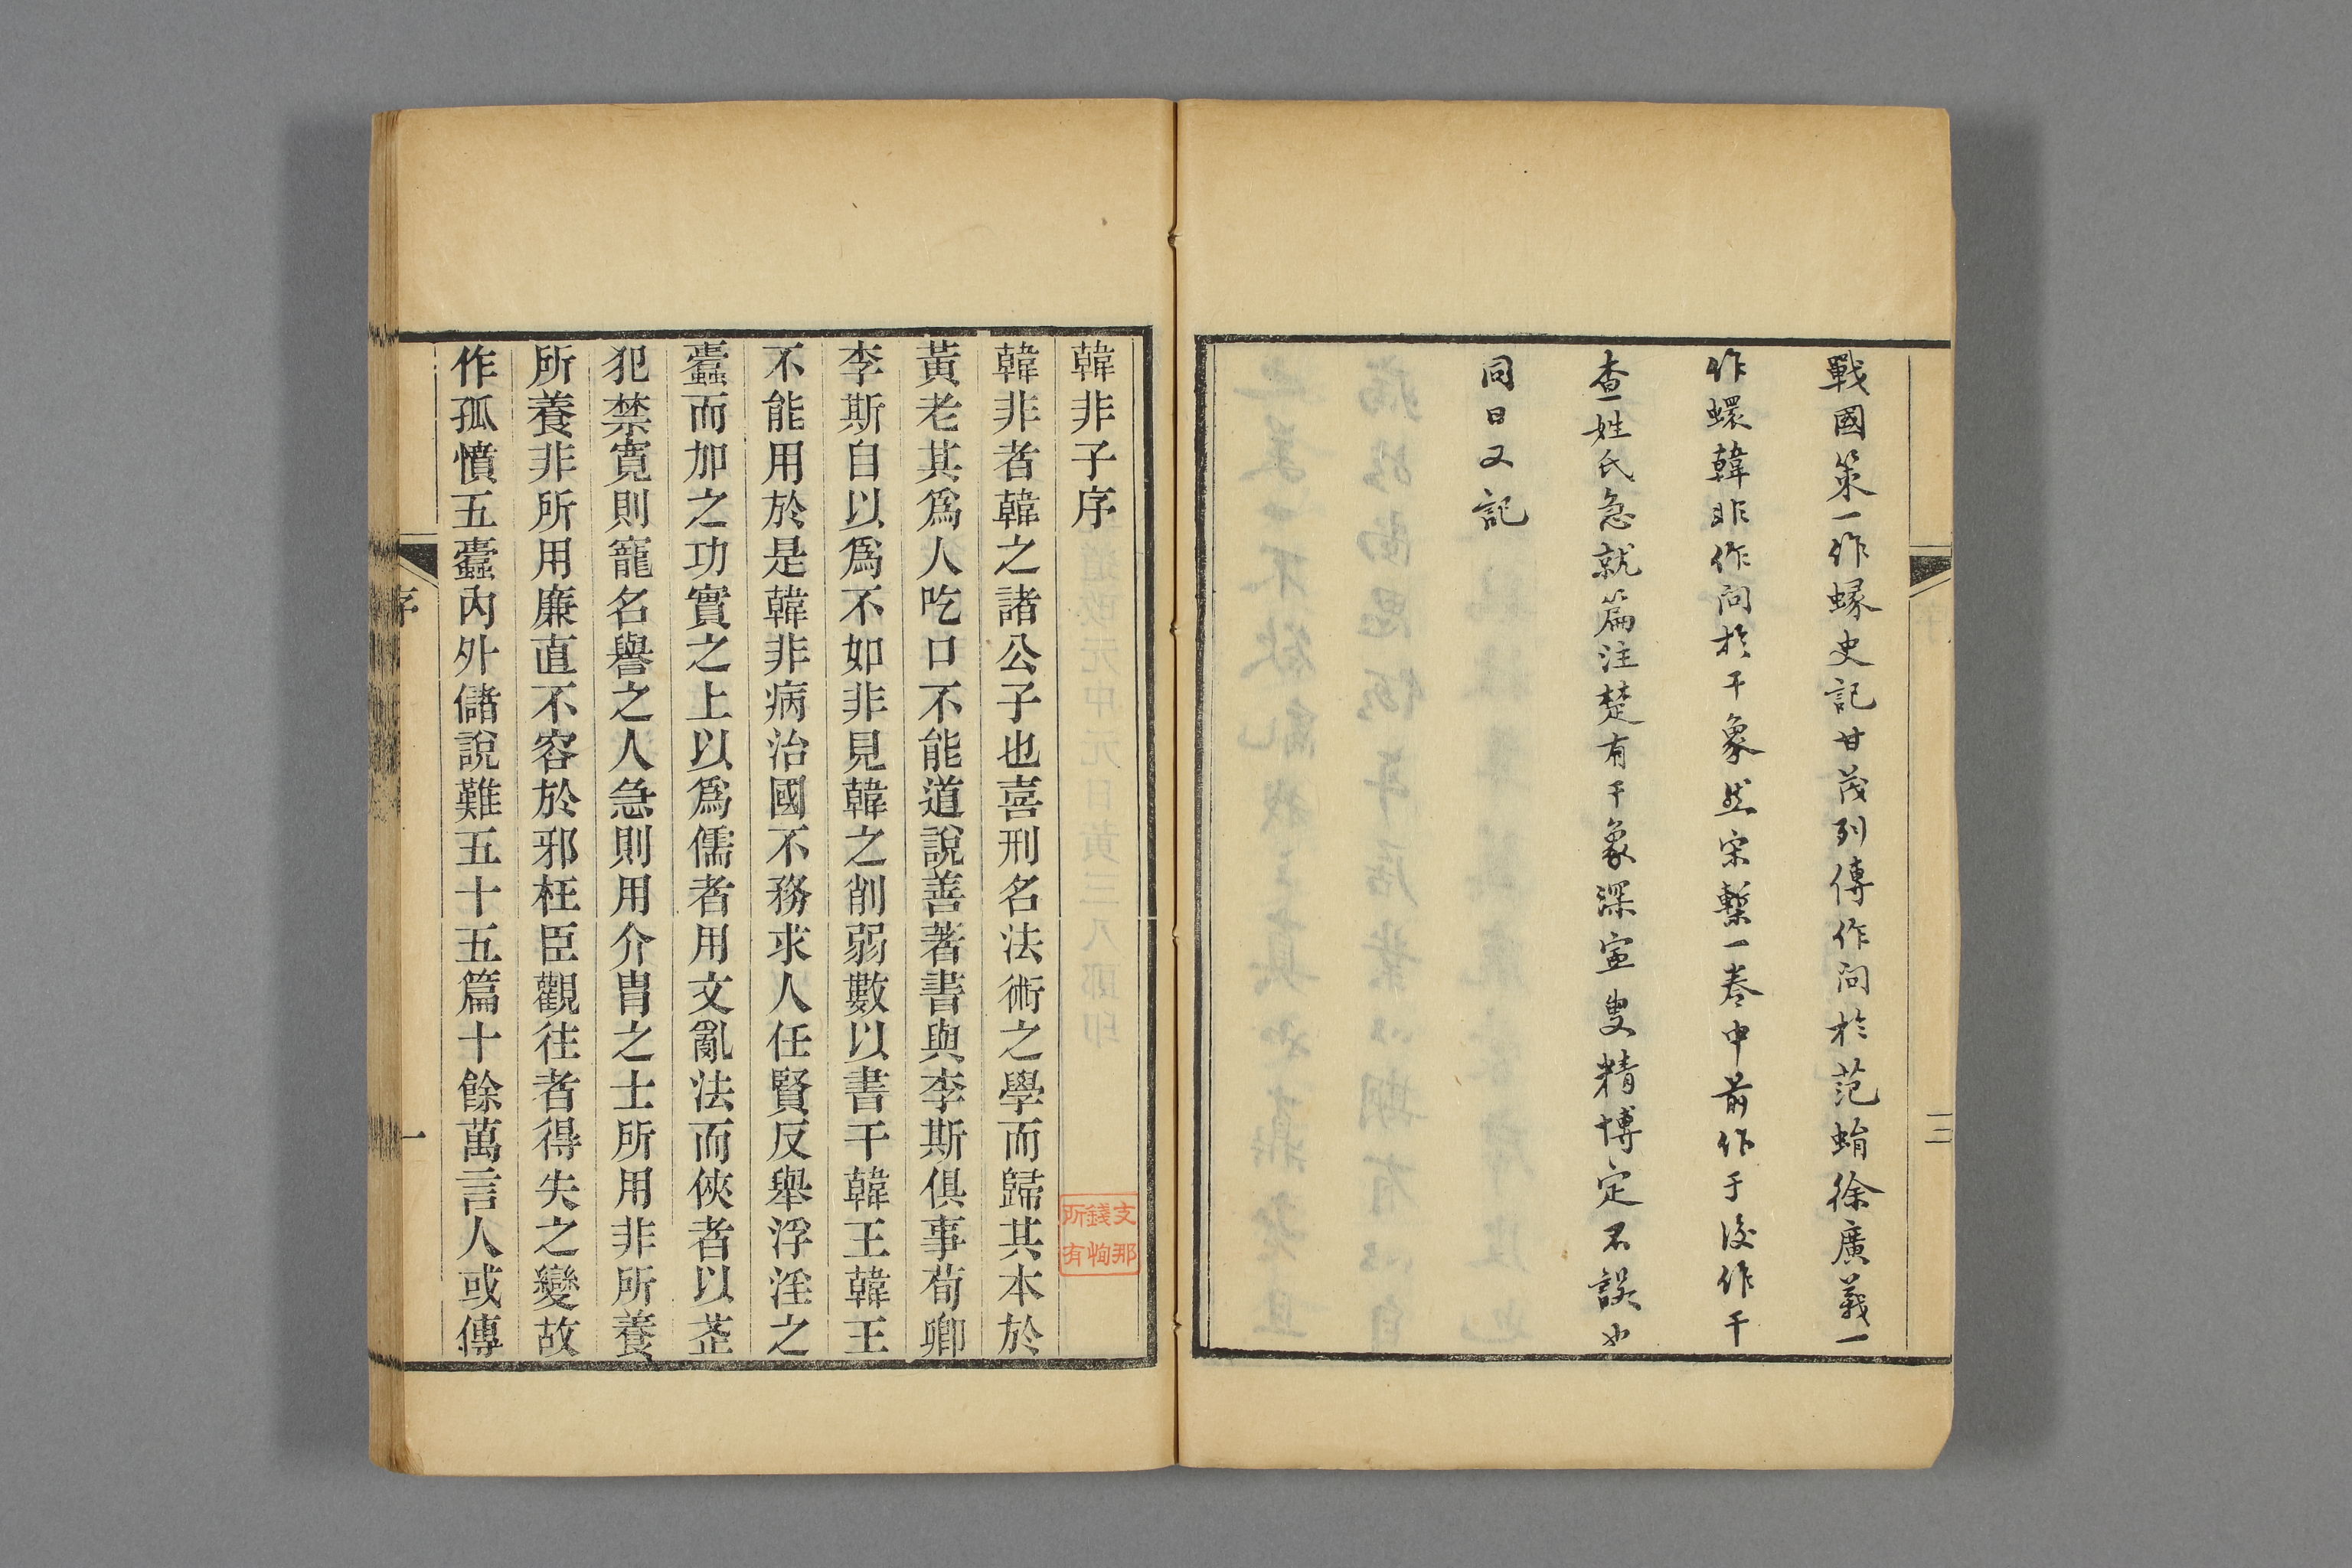 戰國策一作蝝史記甘茂列傳作問於范蜎徐廣義一
作蠉韓非作問於干象然宋槧一卷中前作于後作干
查姓氏急就篇注楚有干象深寧叟精博定不誤也
同日又記
三
韓非子序
韓非者韓之諸公子也喜刑名法術之學而歸其本於
黃老其爲人吃口不能道說善著書與李斯俱事荀卿
李斯自以爲不如非見韓之削弱數以書干韓王韓王
不能用於是韓非病治國不務求人任賢反舉浮淫之
蠹而加之功實之上以爲儒者用文亂法而俠者以武
犯禁寬則寵名譽之人急則用介胄之士所用非所養
所養非所用廉直不容於邪枉臣觀往者得失之變故
作孤憤五蠹內外儲說難五十五篇十餘萬言人或傳
序
一
支那
錢恂
所有